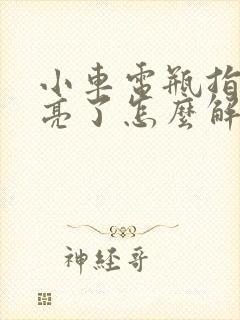 小車電瓶指
亮了怎麼解
神經哥